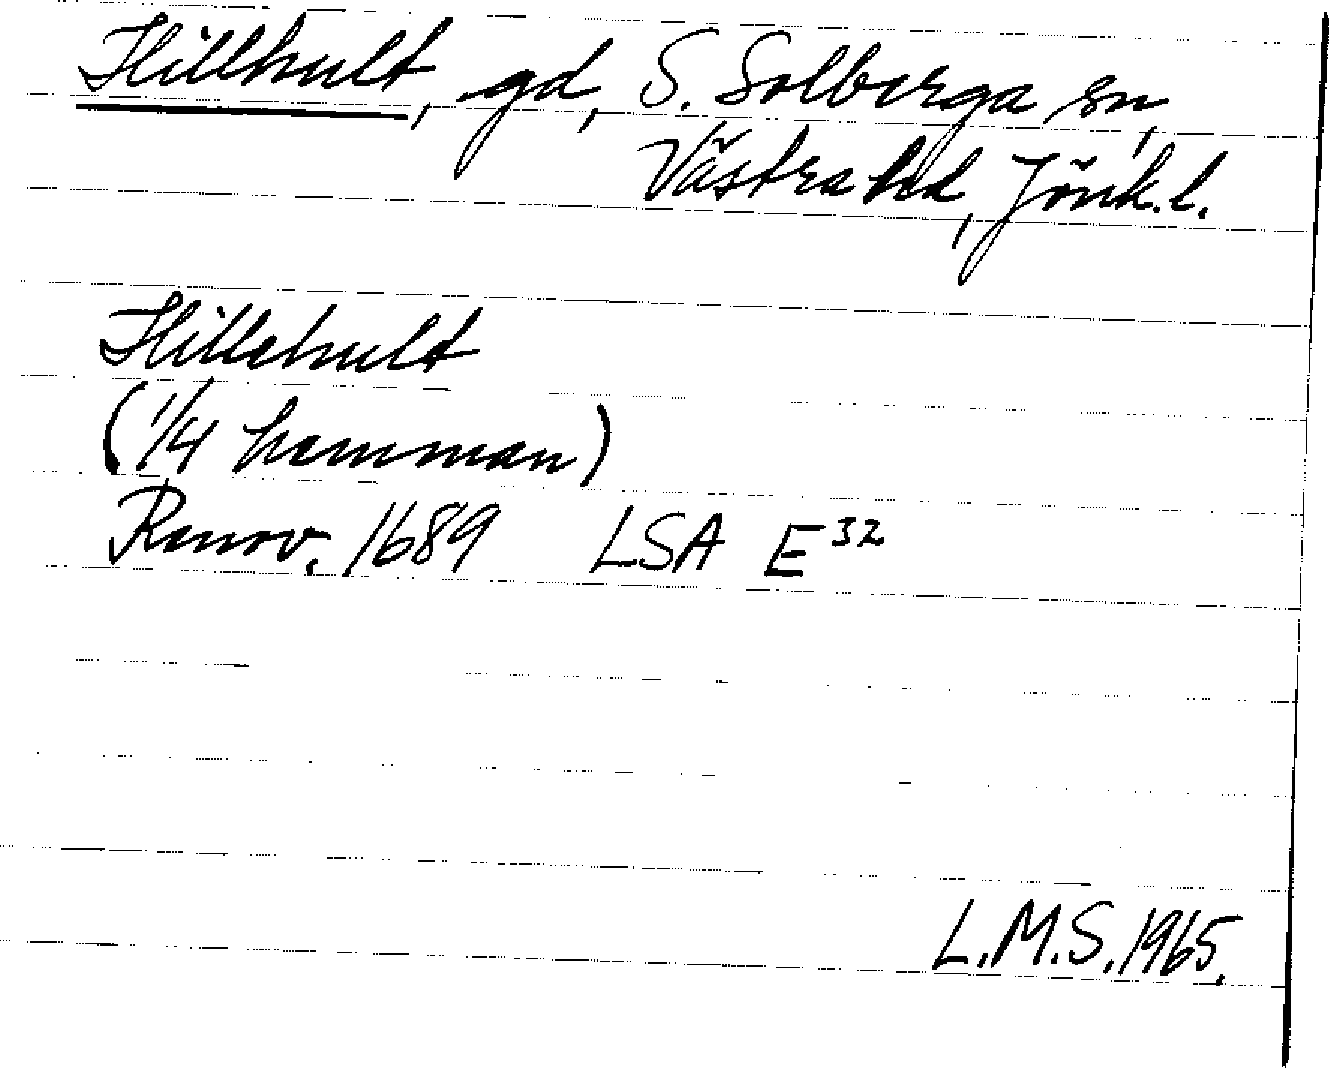 Hillhult, gd, S. Solberga sn,
Västra hd, Jönk. l.
Hillehult
(1/4 hemman)
Renov. 1689 LSA E³²
L.M.S. 1965.